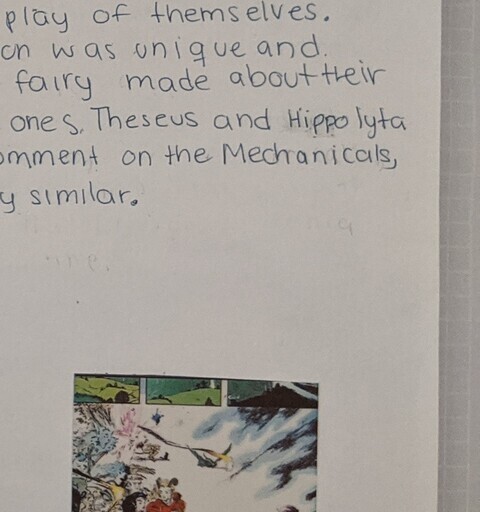 play of themselves.
on was unique and
fairy made about their
ones. Theseus and Hippolyta
omment on the Mechanicals,
y similar.